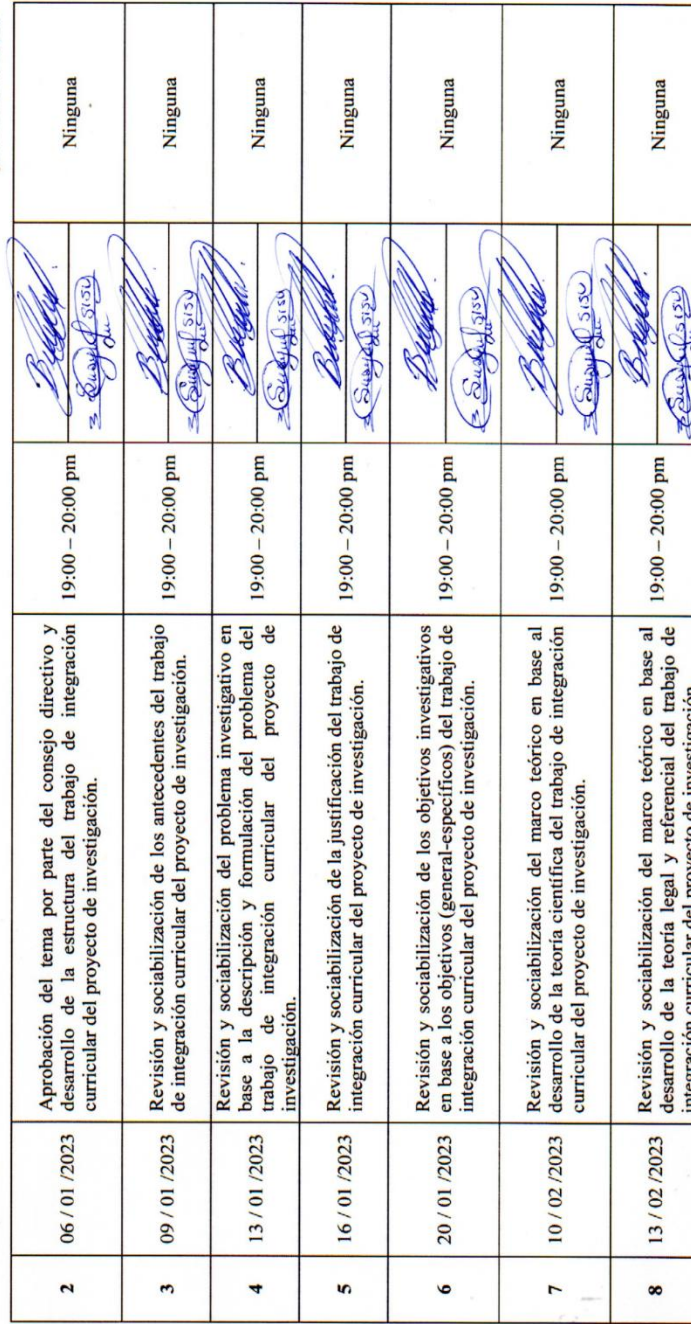 2
06 / 01 /2023
Aprobación del tema por parte del consejo directivo y
desarrollo de la estructura del trabajo de integración
curricular del proyecto de investigación.
19:00 – 20:00 pm
Ninguna
3
09 / 01 /2023
Revisión y sociabilización de los antecedentes del trabajo
de integración curricular del proyecto de investigación.
19:00 – 20:00 pm
Ninguna
4
13 / 01 /2023
Revisión y sociabilización del problema investigativo en
base a la descripción y formulación del problema del
trabajo de integración curricular del proyecto de
investigación.
19:00 – 20:00 pm
Ninguna
5
16 / 01 /2023
Revisión y sociabilización de la justificación del trabajo de
integración curricular del proyecto de investigación.
19:00 – 20:00 pm
Ninguna
6
20 / 01 /2023
Revisión y sociabilización de los objetivos investigativos
en base a los objetivos (general-específicos) del trabajo de
integración curricular del proyecto de investigación.
19:00 – 20:00 pm
Ninguna
7
10 / 02 /2023
Revisión y sociabilización del marco teórico en base al
desarrollo de la teoría científica del trabajo de integración
curricular del proyecto de investigación.
19:00 – 20:00 pm
Ninguna
8
13 / 02 /2023
Revisión y sociabilización del marco teórico en base al
desarrollo de la teoría legal y referencial del trabajo de
integración curricular del proyecto de investigación.
19:00 – 20:00 pm
Ninguna